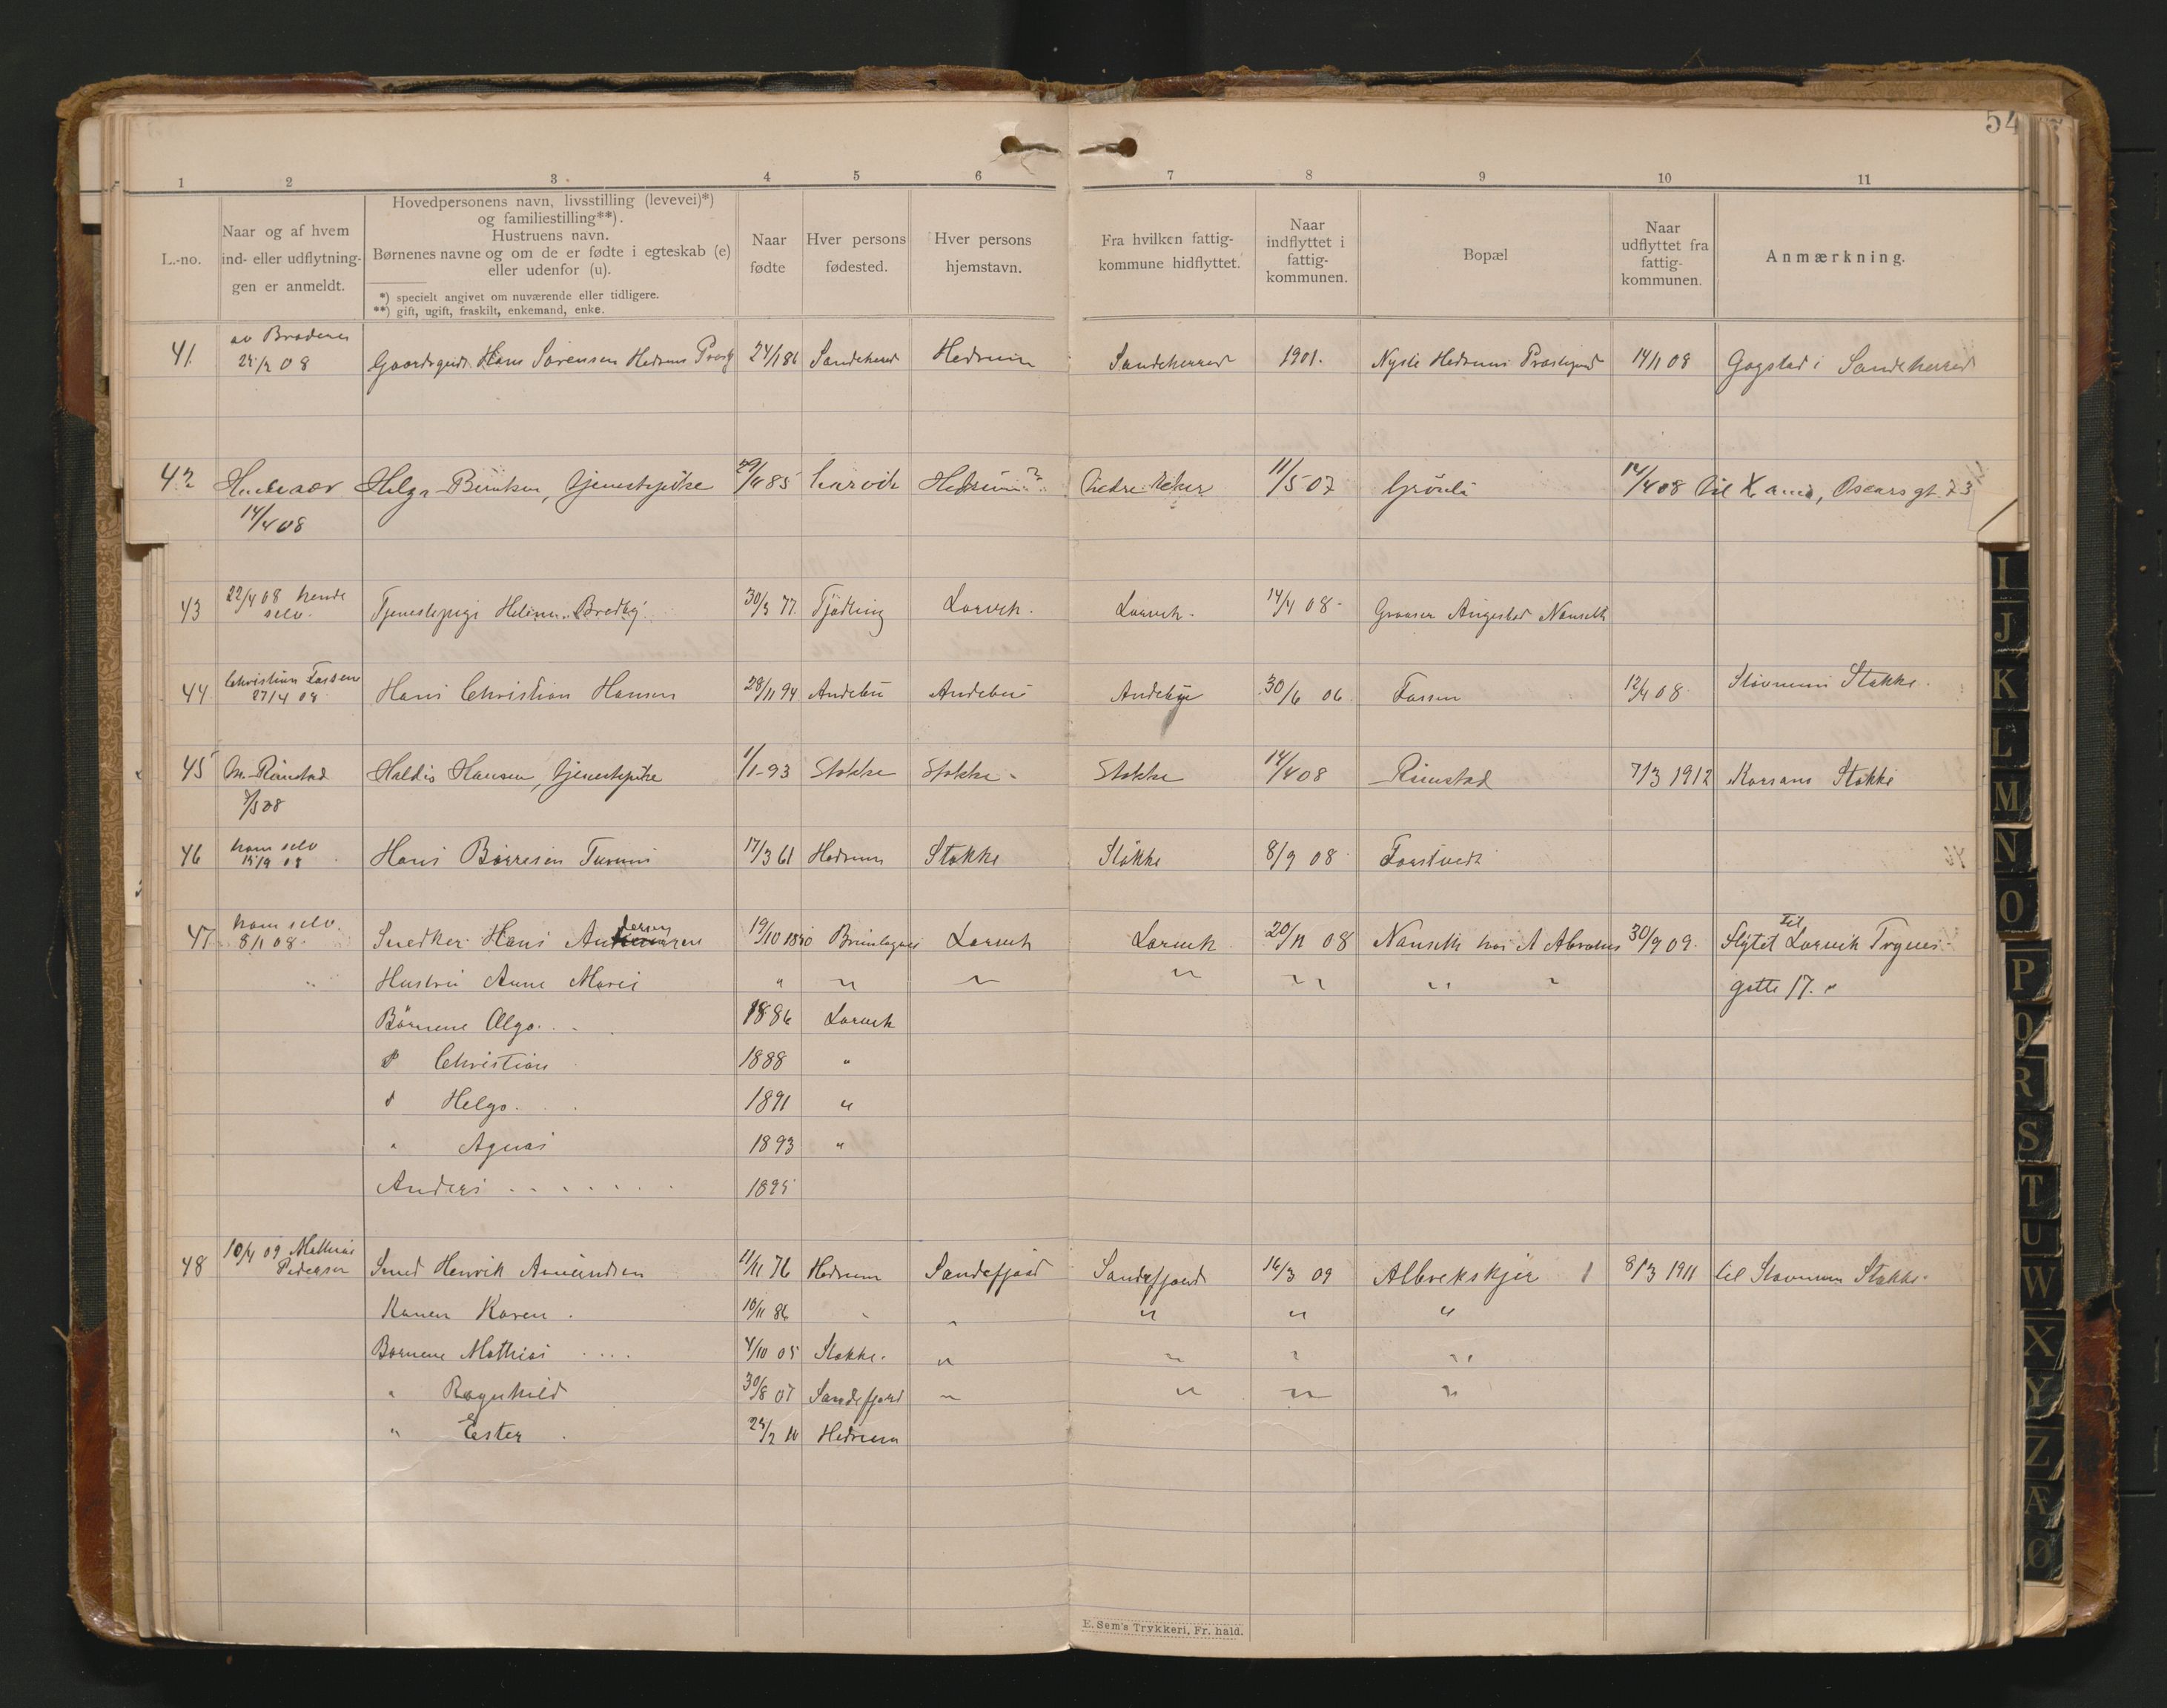 54
1 2 3 4 5 6 7 8 9 10 11
L.-no.
Naar og af hvem
ind- eller udflytnin-
gen er anmeldt.
Hovedpersonens navn, livsstilling (levevei)*)
og familiestilling**).
Hustruens navn.
Børnenes navne og om de er fødte i egteskab (e)
eller udenfor (u).
*) specielt angivet om nuværende eller tidligere.
**) gift, ugift, fraskilt, enkemand, enke.
Naar
fødte
Hver persons
fødested.
Hver persons
hjemstavn.
Fra hvilken fattig-
kommune hidflyttet.
Naar
indflyttet i
fattig-
kommunen.
Bopæl
Naar
udflyttet fra
fattig-
kommunen.
Anmærkning.
av Broderen
41 08 Hans Sørensen Hedrum 24/1 86 Sandeherred Hedrum Sandeherred 1901. Hedrum 14/1 08 Gogstad i Sandeherred
42 Helga , Tjenestepike 85 Larvik Hedrum ? Aker 11/5 07 Grønli 14/4 08 til Xania, Oscarsgt. 73
14/4 08
43 22/4 08 hende Tjenestepige 30/3 77. Tjødling Larvik. Larvik. 14/4 08 Nanseth
selv.
Christian
44 27/4 08 Hans Christian Hansen 28/11 94 Andebu Andebu Andebu 30/6 06 12/4 08 Stokke.
45 Haldis Hansen, Tjenestepike 1/1-93 Stokke Stokke Stokke 14/4 08 Rimstad 7/3 1912 Stokke
46 ham selv Hans Børresen 17/3 61 Hedrum Stokke Stokke 8/9 08
15/9 08
47 ham selv. Snedker Hans Andersen 19/10 1850 Brunlagnes Larvik Larvik 20/11 08 Nanseth hos A 30/9 09. Flytet til Larvik Trynes-
8/1 08
" Hustru Anne Marie " " " " " " " gatte 17.
Børnene Olga 1886 Larvik
" Christian 1888 "
" Helga 1891 "
" Agnas 1893 "
Anders 1895
48 10/4 09 Mathias Smed Henrik Amundsen 11/11 76 Hedrum Sandefjord Sandefjord 16/3 09 Albrekskjer 8/3 1911 til Stokke
Pedersen
Konen Karen 10/11 86 " " " " "
Børnene Mathias 4/10 05 Stokke " " " "
" Ragnhild 30/8 07 Sandefjord " " " "
" Ester 25/2 10 Hedrum
E. Sem's Trykkeri, Fr. hald.
I
J
K
L
M
N
O
P
Q
R
S
T
U
W
X
Y
Z
Æ
Ø